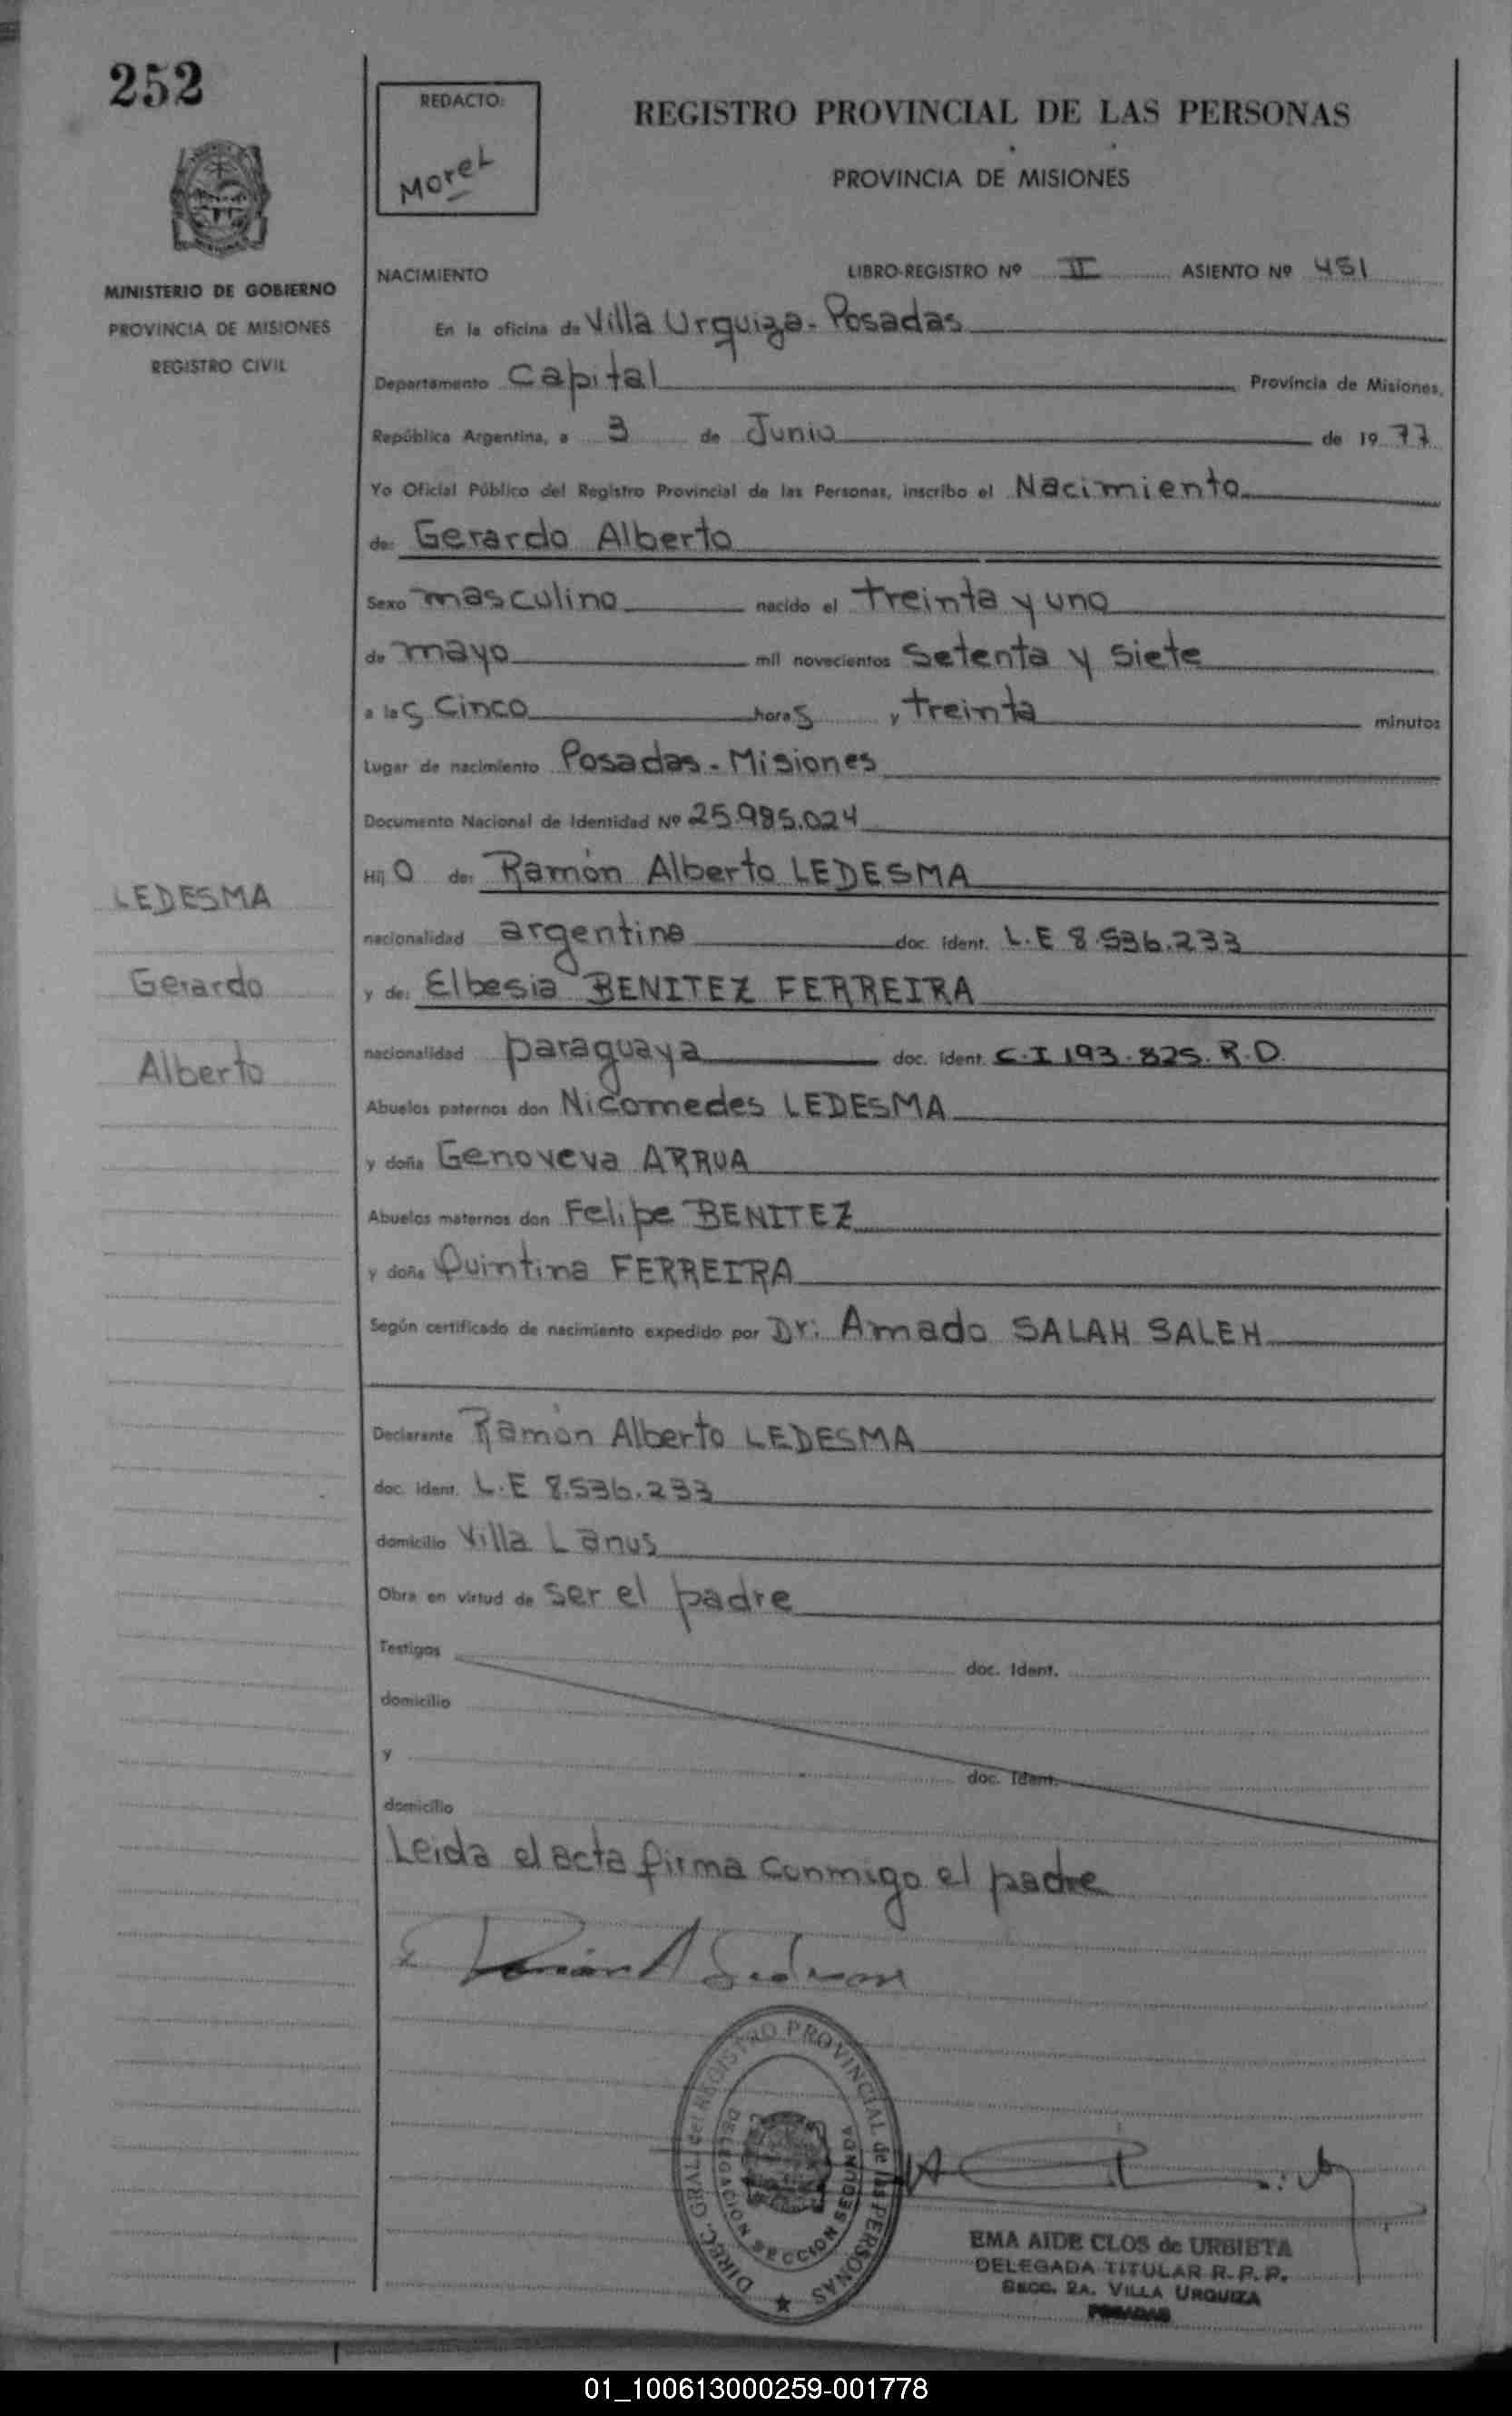 252
REDACTO:
Morel
REGISTRO PROVINCIAL DE LAS PERSONAS
PROVINCIA DE MISIONES
MINISTERIO DE GOBIERNO
PROVINCIA DE MISIONES
REGISTRO CIVIL
NACIMIENTO LIBRO-REGISTRO Nº II ASIENTO Nº 451
En la oficina de Villa Urquiza - Posadas
Departamento Capital Provincia de Misiones,
República Argentina, a 3 de Junio de 1977
Yo Oficial Público del Registro Provincial de las Personas, inscribo el Nacimiento
de: Gerardo Alberto
Sexo masculino nacido el treinta y uno
de mayo mil novecientos setenta y siete
a las cinco horas y treinta minutos
Lugar de nacimiento Posadas - Misiones
Documento Nacional de Identidad Nº 25.985.024
Hijo de: Ramón Alberto LEDESMA
nacionalidad argentina doc. ident. L.E 8.536.233
y de: Elbesia BENITEZ FERREIRA
nacionalidad paraguaya doc. ident. C.I 193.825. R.D.
Abuelos paternos don Nicomedes LEDESMA
y doña Genoveva ARRUA
Abuelos maternos don Felipe BENITEZ
y doña Quintina FERREIRA
Según certificado de nacimiento expedido por Dr: Amado SALAH SALEH
Declarante Ramón Alberto LEDESMA
doc. ident. L.E 8.536.233
domicilio Villa Lanus
Obra en virtud de ser el padre
Testigos doc. Ident.
domicilio
y doc. Ident.
domicilio
Leida el acta firma conmigo el padre
LEDESMA
Gerardo
Alberto
DIREC. GRAL. del REGISTRO PROVINCIAL de las PERSONAS
DELEGACION SECCION SEGUNDA
EMA AIDE CLOS de URBIETA
DELEGADA TITULAR R. P. P.
SECC. 2A. VILLA URQUIZA
POSADAS
01_100613000259-001778